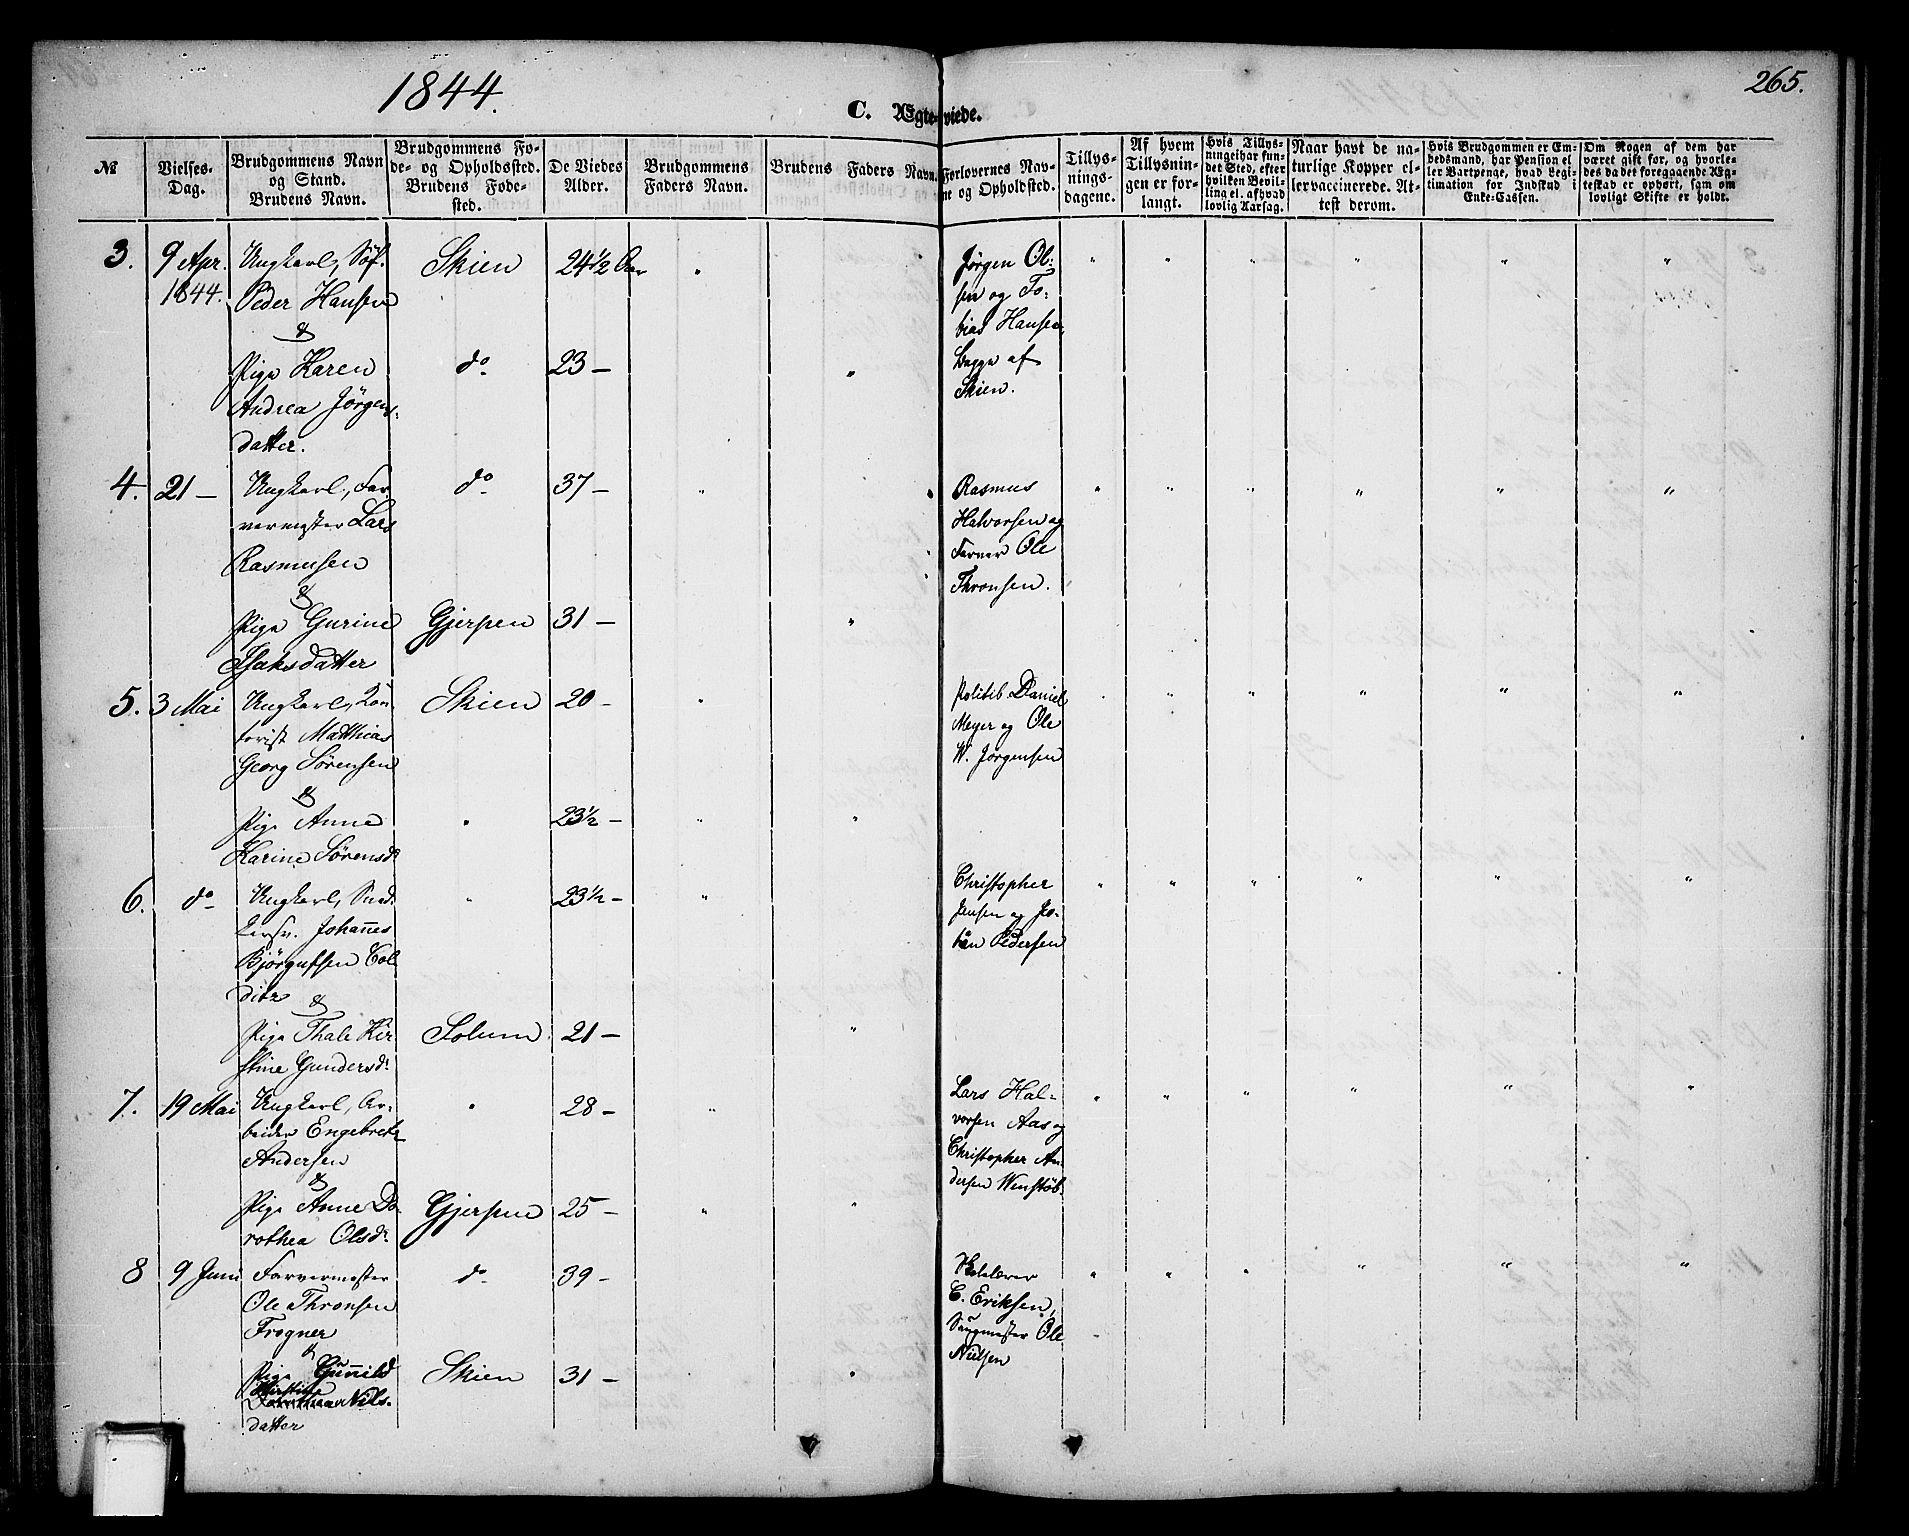 1844.
265.
C. Ægteviede.
№
Vielses-
Dag.
Brudgommens Navn
og Stand.
Brudens Navn.
Brudgommens Fø-
de- og Opholdssted.
Brudens Føde-
sted.
De Viedes
Alder.
Brudgommens
Faders Navn.
Brudens Faders Navn.
Forlovernes Nav-
ne og Opholdsted.
Tillys-
nings-
dagene.
Af hvem
Tillysnin-
gen er for-
langt.
Hvis Tillys-
ningeihar fun-
det Sted, efter
hvilken Bevil-
ling el. afhvad
lovlig Aarsag.
Naar havt de na-
turlige Kopper el-
lervaccinerede. At-
test derom.
Hvis Brudgommen er Em-
bedsmand, har Pension el
ler Vartpenge, hvad Legi-
timation for Indskud i
Enke-Cassen.
Om Nogen af dem har
været gift før, og hvorle-
des da det foregaaende Æg-
teskab er ophørt, sam om
lovligt Skifte er holdt.
3.
9 Apr.
1844.
Ungkarl, Søf.
Peder Hansen
&
Pige Karen
Andrea Jørgens-
datter.
Skien
do
24½ Aar
23 —
Jørgen Ol-
sen og To-
bias Hansen,
Begge af
Skien.
4.
21 —
Ungkarl, Far-
vermester Lars
Rasmusen
&
Pige Gurine
Isaksdatter
do
Gjerpen
37 —
31 —
Rasmus
Halvorsen og
Farver Ole
Thronsen.
5.
3 Mai
Ungkarl, Kon-
torist Matthias
Georg Sørensen
&
Pige Anne
Karine Sørensd.
Skien
20 —
23½ —
Politib. Daniel
Meyer og Ole
W. Jørgensen
6.
do
Ungkarl, Sned-
kersv. Johannes
Bjørgufsen Col
ditz
&
Pige Thale Kir
stine Gundersd.
Solum
23½ —
21 —
Christopher
Jensen og
Pedersen
7.
19 Mai
Ungkarl, Ar-
beider Engebret
Andersen
&
Pige Anne Do-
rothea Olsd.
Gjerpen
28 —
25 —
Lars Hal-
vorsen Aas og
Christopher An
dersen Wenstøb.
8
9 Juni
Farvermester
Ole Thronsen
Frogner
&
Pige Gunnild
Kirstine
Nils-
datter
do
Skien
39 —
31 —
C. Eriksen,
Ole
Nielsen